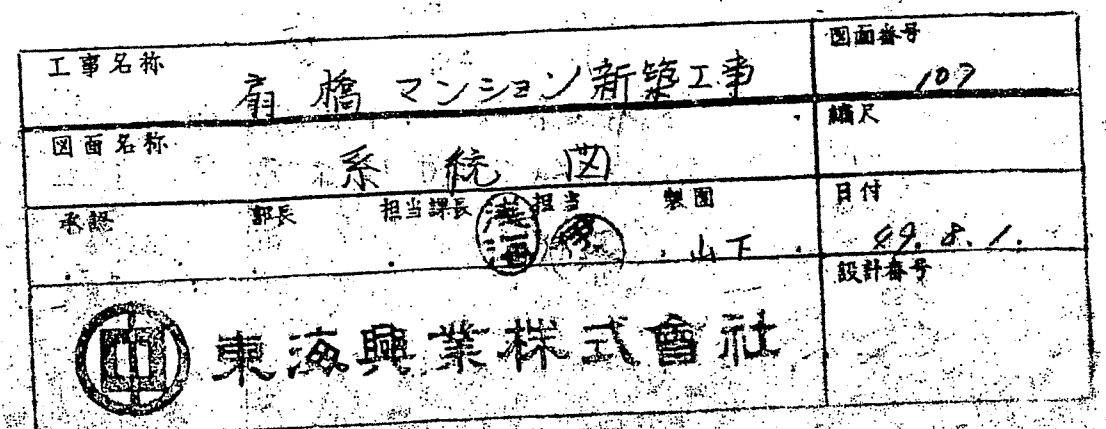 工事名称
肩橋マンション新築工事
図面番号
107
図面名称
系統図
縮尺
承認
部長
担当課長
担当
製図
山下
日付
49.8.1.
設計番号
東海興業株式會社